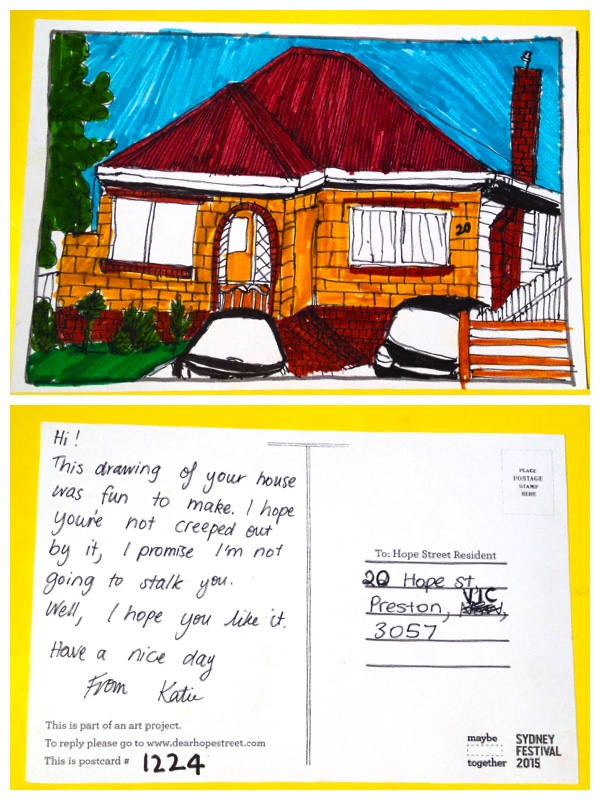 20
Hi!
This drawing of your house
was fun to make. I hope
you're not creeped out
by it, I promise I'm not
going to stalk you.
Well, I hope you like it.
Have a nice day
From Katie
This is part of an art project.
To reply please go to www.dearhopestreet.com
This is postcard # 1224
PLACE
POSTAGE
STAMP
HERE
To: Hope Street Resident
20 Hope st,
VIC
Preston,
3057
maybe
together
SYDNEY
FESTIVAL
2015